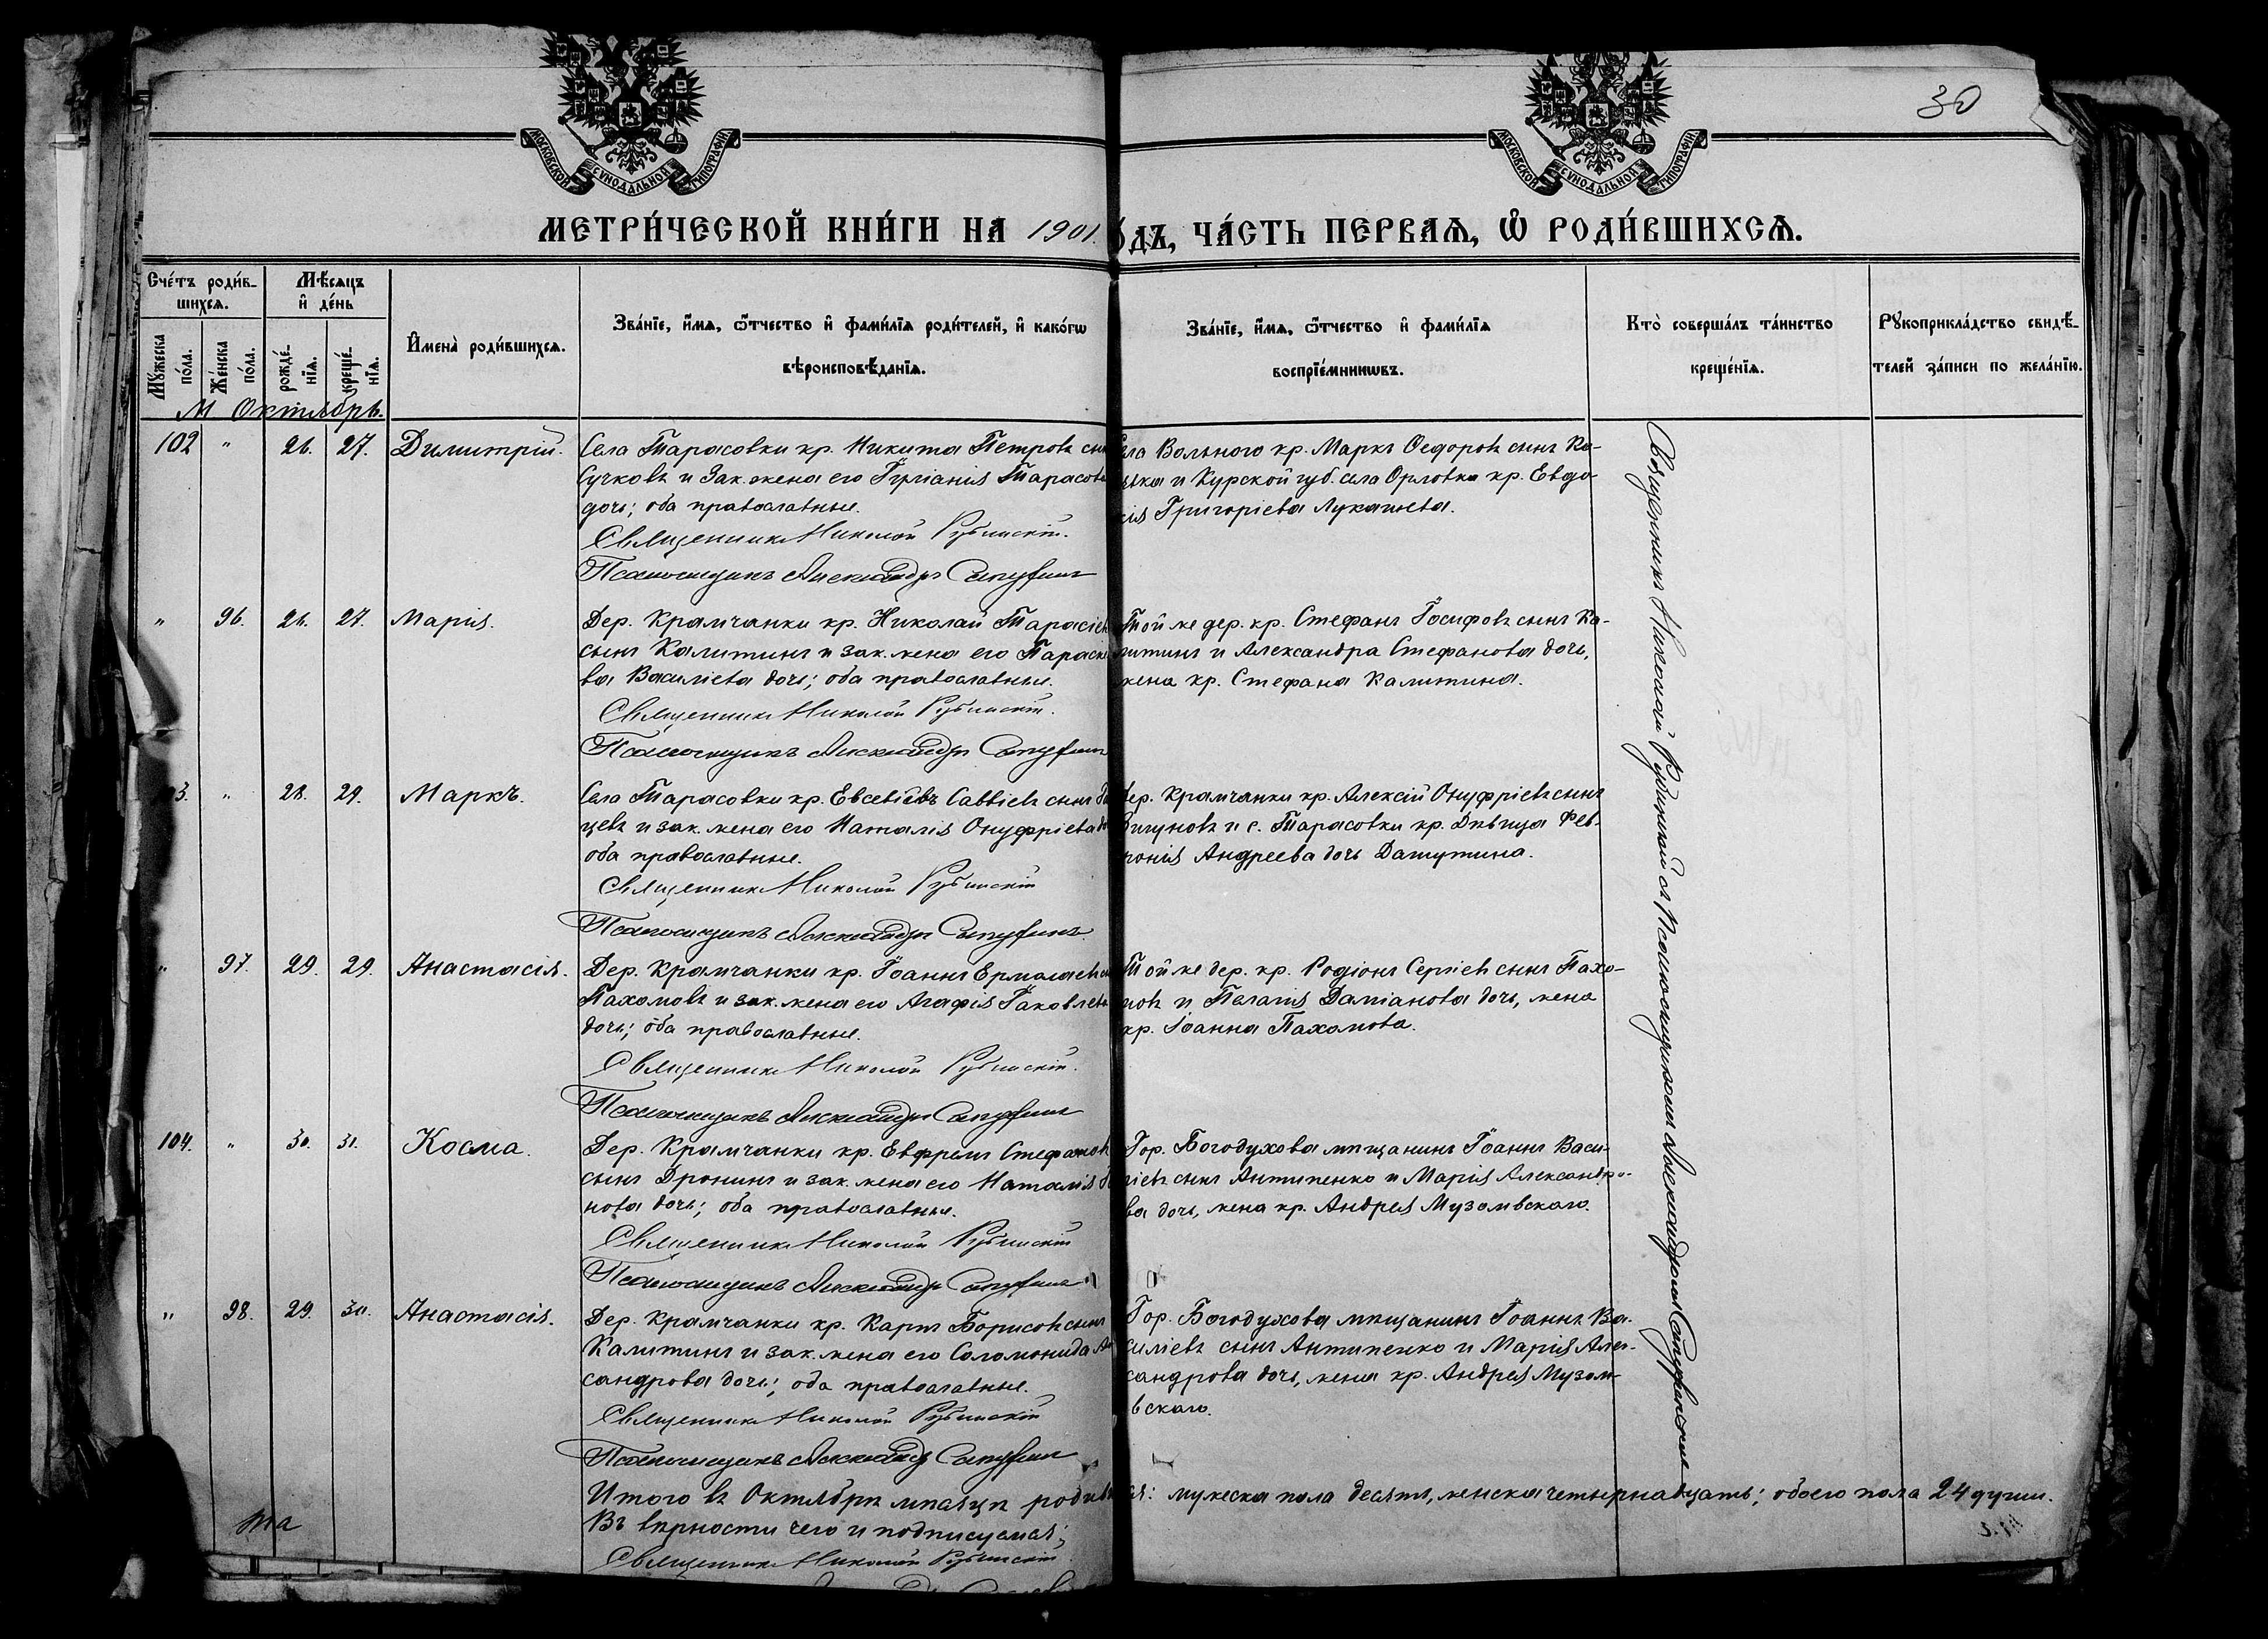 30
МОСКОВСКОЙ СѴНОДАЛЬНОЙ ТИПОГРАФІИ
МОСКОВСКОЙ СѴНОДАЛЬНОЙ ТИПОГРАФІИ
МЕТРИ́ЧЕСКОЙ КНИ́ГИ НА 1901. ДЪ, ЧА́СТЬ ПЕ́РВАѦ, Ѡ҆ РОДИ́ВШИХСѦ.
Сче́тъ роди́в-
шихсѧ.
Мꙋ́жеска по́ла.
Же́нска по́ла.
Мѣ́сѧцъ
и҆ де́нь
рожде́-
нїѧ.
креще́-
нїѧ.
И҆мена̀ роди́вшихсѧ.
Зва́нїе, и҆́мѧ, ѻ҆́тчество и҆ фами́лїѧ роди́телей, и҆ како́гѡ
вѣроисповѣ́данїѧ.
Зва́нїе, и҆́мѧ, ѻ҆́тчество и҆ фами́лїѧ
воспрїе́мникѡвъ.
Кто̀ соверша́лъ та́инство
креще́нїѧ.
Рꙋкоприкла́дство свидѣ́-
телей за́писи по жела́нїю.
М Октябрь.
102 " 26. 27. Димитрій.
Села Тарасовки кр. Никита Петровъ сын
Сучковъ и Зак. жена его Іуліанія Тарасов
дочь; оба православные.
Священникъ Николай Рубинскій.
Псаломщикъ Александръ
ела Вольного кр. Маркъ Ѳедоровъ сынъ Ко-
и Курской губ. села Орловки кр. Евдо-
кія Григоріева Лукашева.
" 96. 26. 27. Марія.
Дер. Крамчанки кр. Николай Тарасіев
сынъ Калитинъ и зак. жена его Параске
ва Василіева дочь; оба православные.
Священникъ Николай Рубинскій.
Псаломщикъ Александръ
Той же дер. кр. Стефанъ Іосифовъ сынъ Ка-
литинъ и Александра Стефанова дочь,
жена кр. Стефана Калитина.
3. " 28. 29. Маркъ.
Села Тарасовки кр. Евсевіевъ Саввіевъ сынъ
цевъ и зак. жена его Наталія Онуфріева
оба православные.
Священникъ Николай Рубинскій
Псаломщикъ Александръ
Дер. Крамчанки кр. Алексій Онуфріевъ сынъ
и с. Тарасовки кр. Дѣвица Фев-
ронія Андреева дочь Дашутина.
" 97. 29. 29. Анастасія.
Дер. Крамчанки кр. Іоаннъ Ермолаевъ
Пахомовъ и зак. жена его Агафія Іаковлев
дочь; оба православные.
Священникъ Николай Рубинскій.
Псаломщикъ Александръ
Той же дер. кр. Родіонъ Сергіевъ сынъ Пахо-
мовъ и Пелагія Даміанова дочь, жена
кр. Іоанна Пахомова.
104. " 30. 31. Косма.
Дер. Крамчанки кр. Евфремъ Стефанов
сынъ Дронинъ и зак. жена его Наталія
нова дочь; оба православные.
Священникъ Николай Рубинскій
Псаломщикъ Александръ
Гор. Богодухова мѣщанинъ Іоаннъ Васи-
ліевъ сынъ Антипенко и Марія Александро-
ва дочь, жена кр. Андрея Музолевскаго.
" 98. 29. 30. Анастасія.
Дер. Крамчанки кр. Карпъ Борисовъ сынъ
Калитинъ и зак. жена его Соломонида
сандрова дочь; оба православные.
Священникъ Николай Рубинскій
Псаломщикъ Александръ
Гор. Богодухова мѣщанинъ Іоаннъ Ва-
силіевъ сынъ Антипенко и Марія Алек-
сандрова дочь, жена кр. Андрея
вскаго.
Священникъ Николай Рубинскій съ Псаломщикомъ Александромъ
Итого въ Октябрѣ мѣсяцѣ родив ся: мужеска пола десять, женска четырнадцать; обоего пола 24 души.
Въ вѣрности чего и подписуемся:
Священникъ Николай Рубинскій